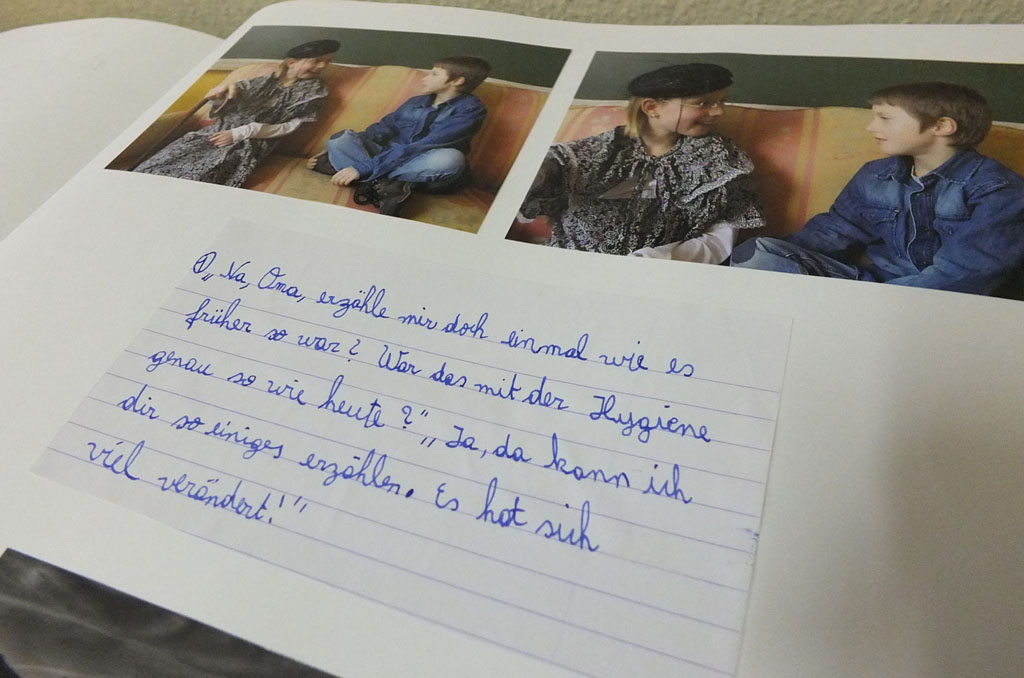 ① „Na, Oma, erzähle mir doch einmal wie es
früher so war? War das mit der Hygiene
genau so wie heute?“ „Ja, da kann ich
dir so einiges erzählen. Es hat sich
viel verändert!“